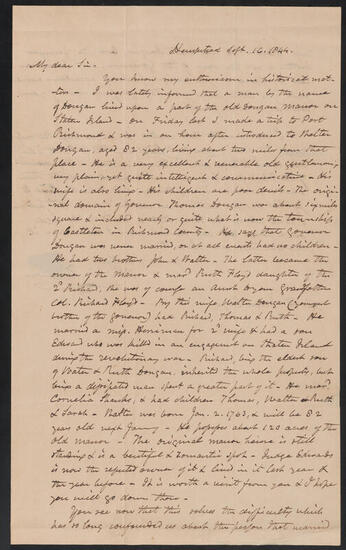 Hempstead Sept. 16. 1844.
My dear Sir -
You know my enthusiasm in historical mat-
ters - I was lately informed that a man by the name
of Dongan lived upon a part of the old Dongan manor on
Staten Island - On Friday last I made a trip to Port
Richmond & was in an hour after introduced to Walter
Dongan, aged 82 years, living about two miles from that
place - He is a very excellent & venerable old gentleman,
very plain, yet quite intelligent & communicative - His
wife is also living - His children are poor devils - The origi-
nal domain of Governor Thomas Dongan was about six miles
square & included nearly or quite what is now the township
of Castleton in Richmond County - He says that Governor
Dongan was never married, or at all events had no children
He had two brothers John & Walter - The latter became the
owner of the manor & mard Ruth Floyd daughter of the
2d Richard, she was of course an Aunt to your grandfather
Col. Richard Floyd - By this wife Walter Dongan (youngest
brother of the Governor) had Richard, Thomas & Ruth - He
married a Miss. Harriman for 2d wife & had a son
Edward who was killed in an engagement on Staten Island
during the revolutionary war - Richard, being the eldest son
of Walter & Ruth Dongan, inherited the whole property, but
being a dissipated man spent a greater part of it - He mard
Cornelia & had children Thomas, Walter Ruth
& Sarah - Walter was born Jan. 2. 1763, & will be 82
years old next Jany - He possesses about 120 acres of the
old manor - The original manor house is still
standing & is a beautiful & romantic spot - Judge Edwards
is now the reputed owner of it & lived in it last year &
the year before - It is worth a visit from you & I hope
you will go down there -
You see now that this solves the difficulty which
has so long confounded us about the person that married